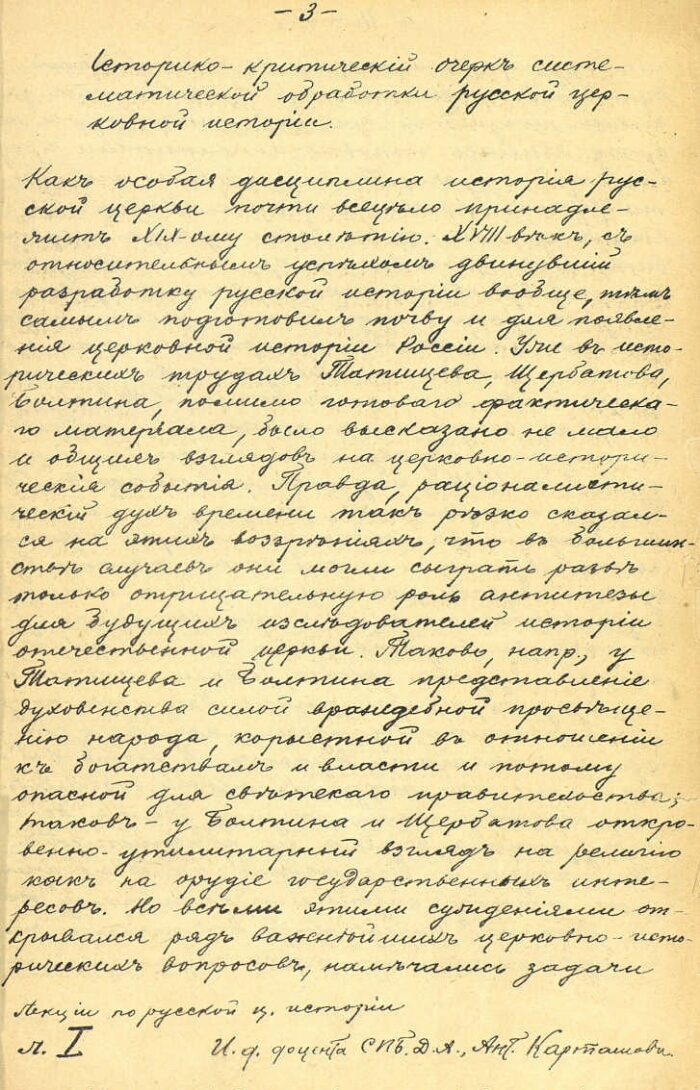 – 3 –
Историко-критическій очеркъ систе-
матической обработки русской цер-
ковной исторіи.
Какъ особая дисциплина исторія рус-
ской церкви почти всецѣло принадле-
житъ XIX-ому столѣтію. XVIII вѣкъ, съ
относительнымъ успѣхомъ двинувшій
разработку русской исторіи вообще, тѣмъ
самымъ подготовилъ почву и для появле-
нія церковной исторіи Россіи. Уже въ исто-
рическихъ трудахъ Татищева, Щербатова,
Болтина, помимо готоваго фактическа-
го матеріала, было высказано не мало
и общихъ взглядовъ на церковно-истори-
ческія событія. Правда, раціоналисти-
ческій духъ времени такъ рѣзко сказал-
ся на этихъ воззрѣніяхъ, что въ большин-
ствѣ случаевъ они могли сыграть развѣ
только отрицательную роль антитезы
для будущихъ изслѣдователей исторіи
отечественной церкви. Таково, напр., у
Татищева и Болтина представленіе
духовенства силой враждебной просвѣще-
нію народа, корыстной въ отношеніи
къ богатствамъ и власти и потому
опасной для свѣтскаго правительства;
таковъ – у Болтина и Щербатова откро-
венно-утилитарный взглядъ на религію
какъ на орудіе государственныхъ инте-
ресовъ. Но всѣми этими сужденіями от-
крывался рядъ важнѣйшихъ церковно-исто-
рическихъ вопросовъ, намѣчались задачи
Лекціи по русской ц. исторіи
л. I И. д. доцента СПБ. Д. А., Ант. Карташовъ.